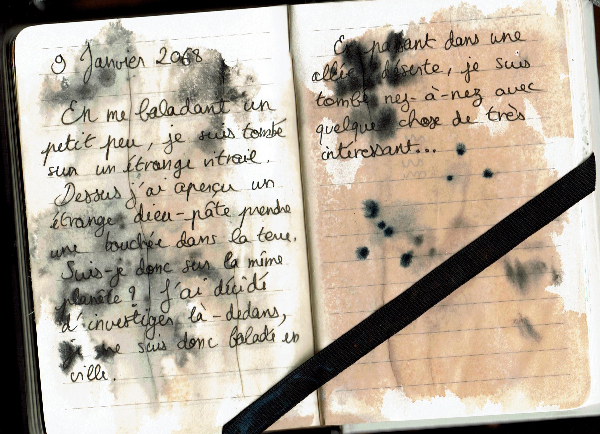 9 Janvier 2068
En me baladant un
petit peu, je suis tombé
sur un étrange vitrail.
Dessus j'ai aperçu un
étrange dieu-pâte prendre
une bouchée dans la terre.
Suis-je donc sur la même
planète ? J'ai décidé
d'investiger là-dedans,
je me suis donc baladé en
ville.
En passant dans une
allée déserte, je suis
tombé nez-à-nez avec
quelque chose de très
intéressant...